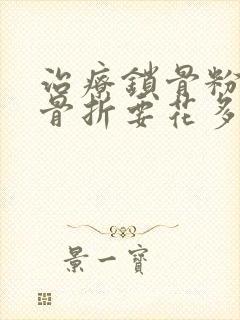 治療鎖骨粉
骨折要花多
景一寶